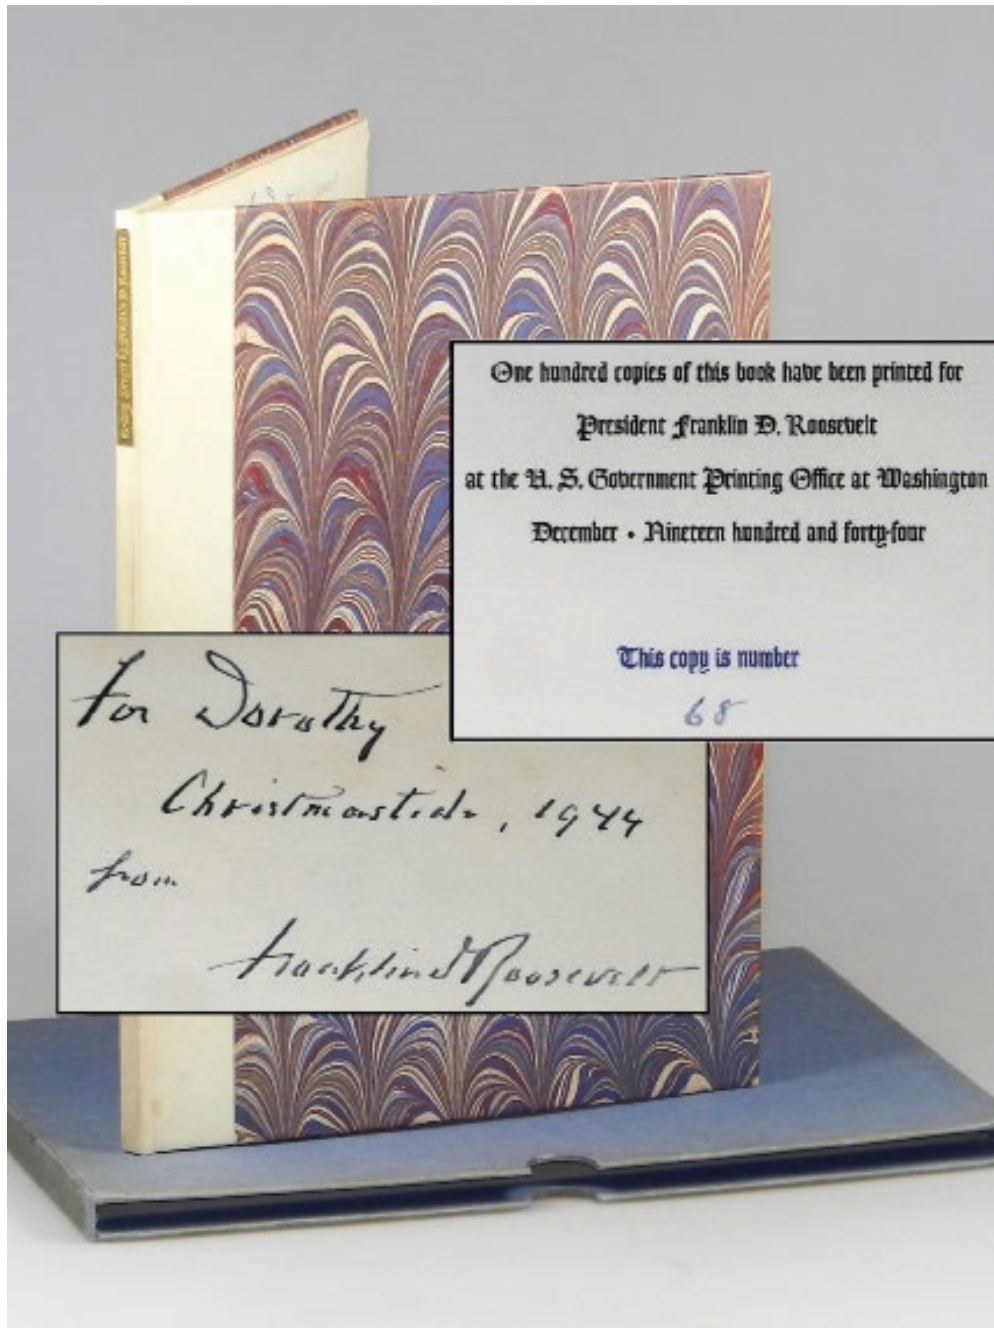 One hundred copies of this book have been printed for
President Franklin D. Roosevelt
at the U. S. Government Printing Office at Washington
December • Nineteen hundred and forty-four
This copy is number
68
For Dorothy
Christmastide, 1944
from
Franklin D Roosevelt